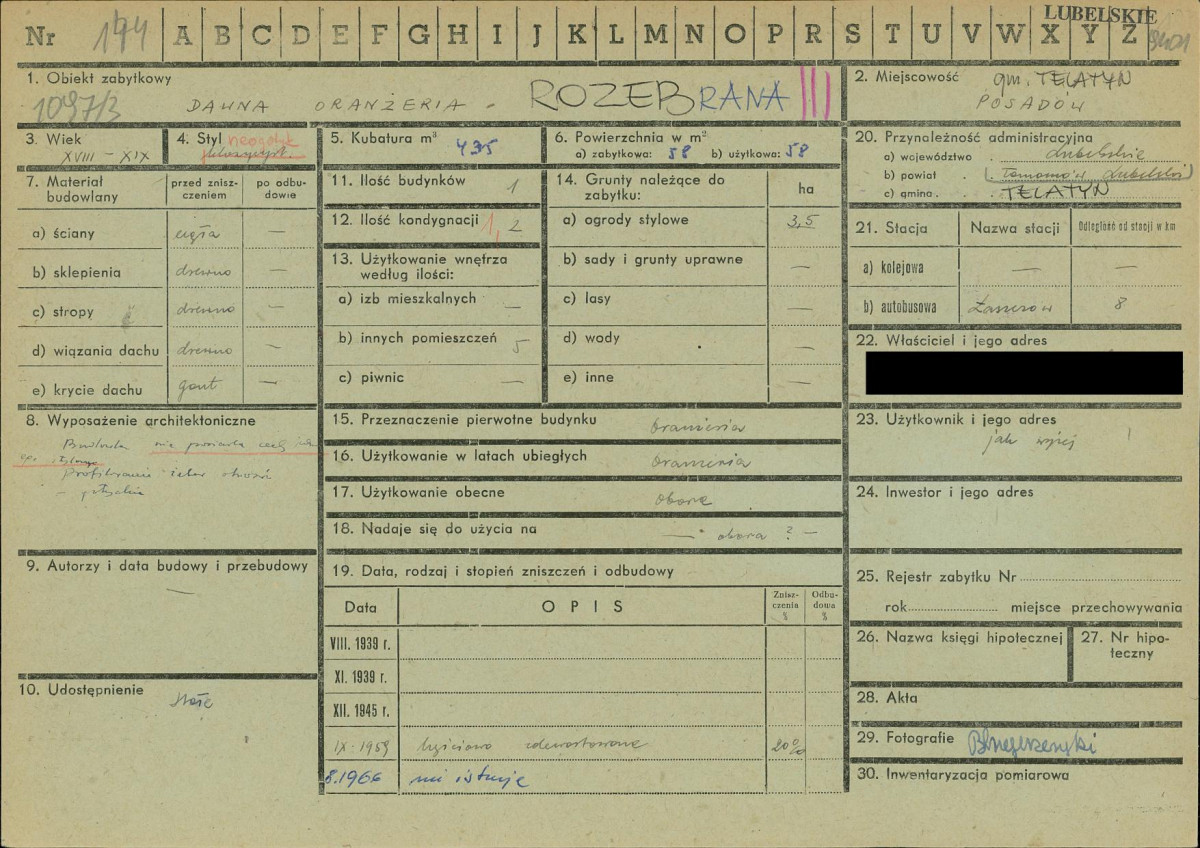 LUBELSKIE
Nr 174 A B C D E F G H I J K L M N O P R S T U V W X Y Z
1. Obiekt zabytkowy
1097/3 DAWNA ORANŻERIA - ROZEBRANA III
2. Miejscowość gm. TELATYN
POSADÓW
3. Wiek
XVIII - XIX
4. Styl neogotyk
5. Kubatura m³ 435
6. Powierzchnia w m²
a) zabytkowa: 58 b) użytkowa: 58
7. Materiał budowlany
przed zniszczeniem
po odbudowie
a) ściany cegła —
b) sklepienia drewno —
c) stropy drewno —
d) wiązania dachu drewno —
e) krycie dachu gont —
8. Wyposażenie architektoniczne
Budynek nie posiada cech
9. Autorzy i data budowy i przebudowy
—
10. Udostępnienie
11. Ilość budynków 1
12. Ilość kondygnacji 1, 2
13. Użytkowanie wnętrza
według ilości:
a) izb mieszkalnych —
b) innych pomieszczeń 5
c) piwnic —
14. Grunty należące do
zabytku:
ha
a) ogrody stylowe 3,5
b) sady i grunty uprawne —
c) lasy
d) wody —
e) inne —
15. Przeznaczenie pierwotne budynku oranżeria
16. Użytkowanie w latach ubiegłych oranżeria
17. Użytkowanie obecne obora
18. Nadaje się do użycia na — obora ? —
19. Data, rodzaj i stopień zniszczeń i odbudowy
Data OPIS Zniszczenia % Odbudowa %
VIII. 1939 r.
XI. 1939 r.
XII. 1945 r.
IX. 1959 częściowo zdewastowane 20%
8.1966 nie istnieje
20. Przynależność administracyjna
a) województwo . lubelskie
b) powiat . (. Tomaszów Lubelski)
c) gmina . TELATYN
21. Stacja Nazwa stacji Odległość od stacji w km
a) kolejowa — —
b) autobusowa Łaszczów 8
22. Właściciel i jego adres
23. Użytkownik i jego adres
jak wyżej
24. Inwestor i jego adres
25. Rejestr zabytku Nr
rok miejsce przechowywania
26. Nazwa księgi hipotecznej
27. Nr hipoteczny
28. Akta
29. Fotografie
30. Inwentaryzacja pomiarowa